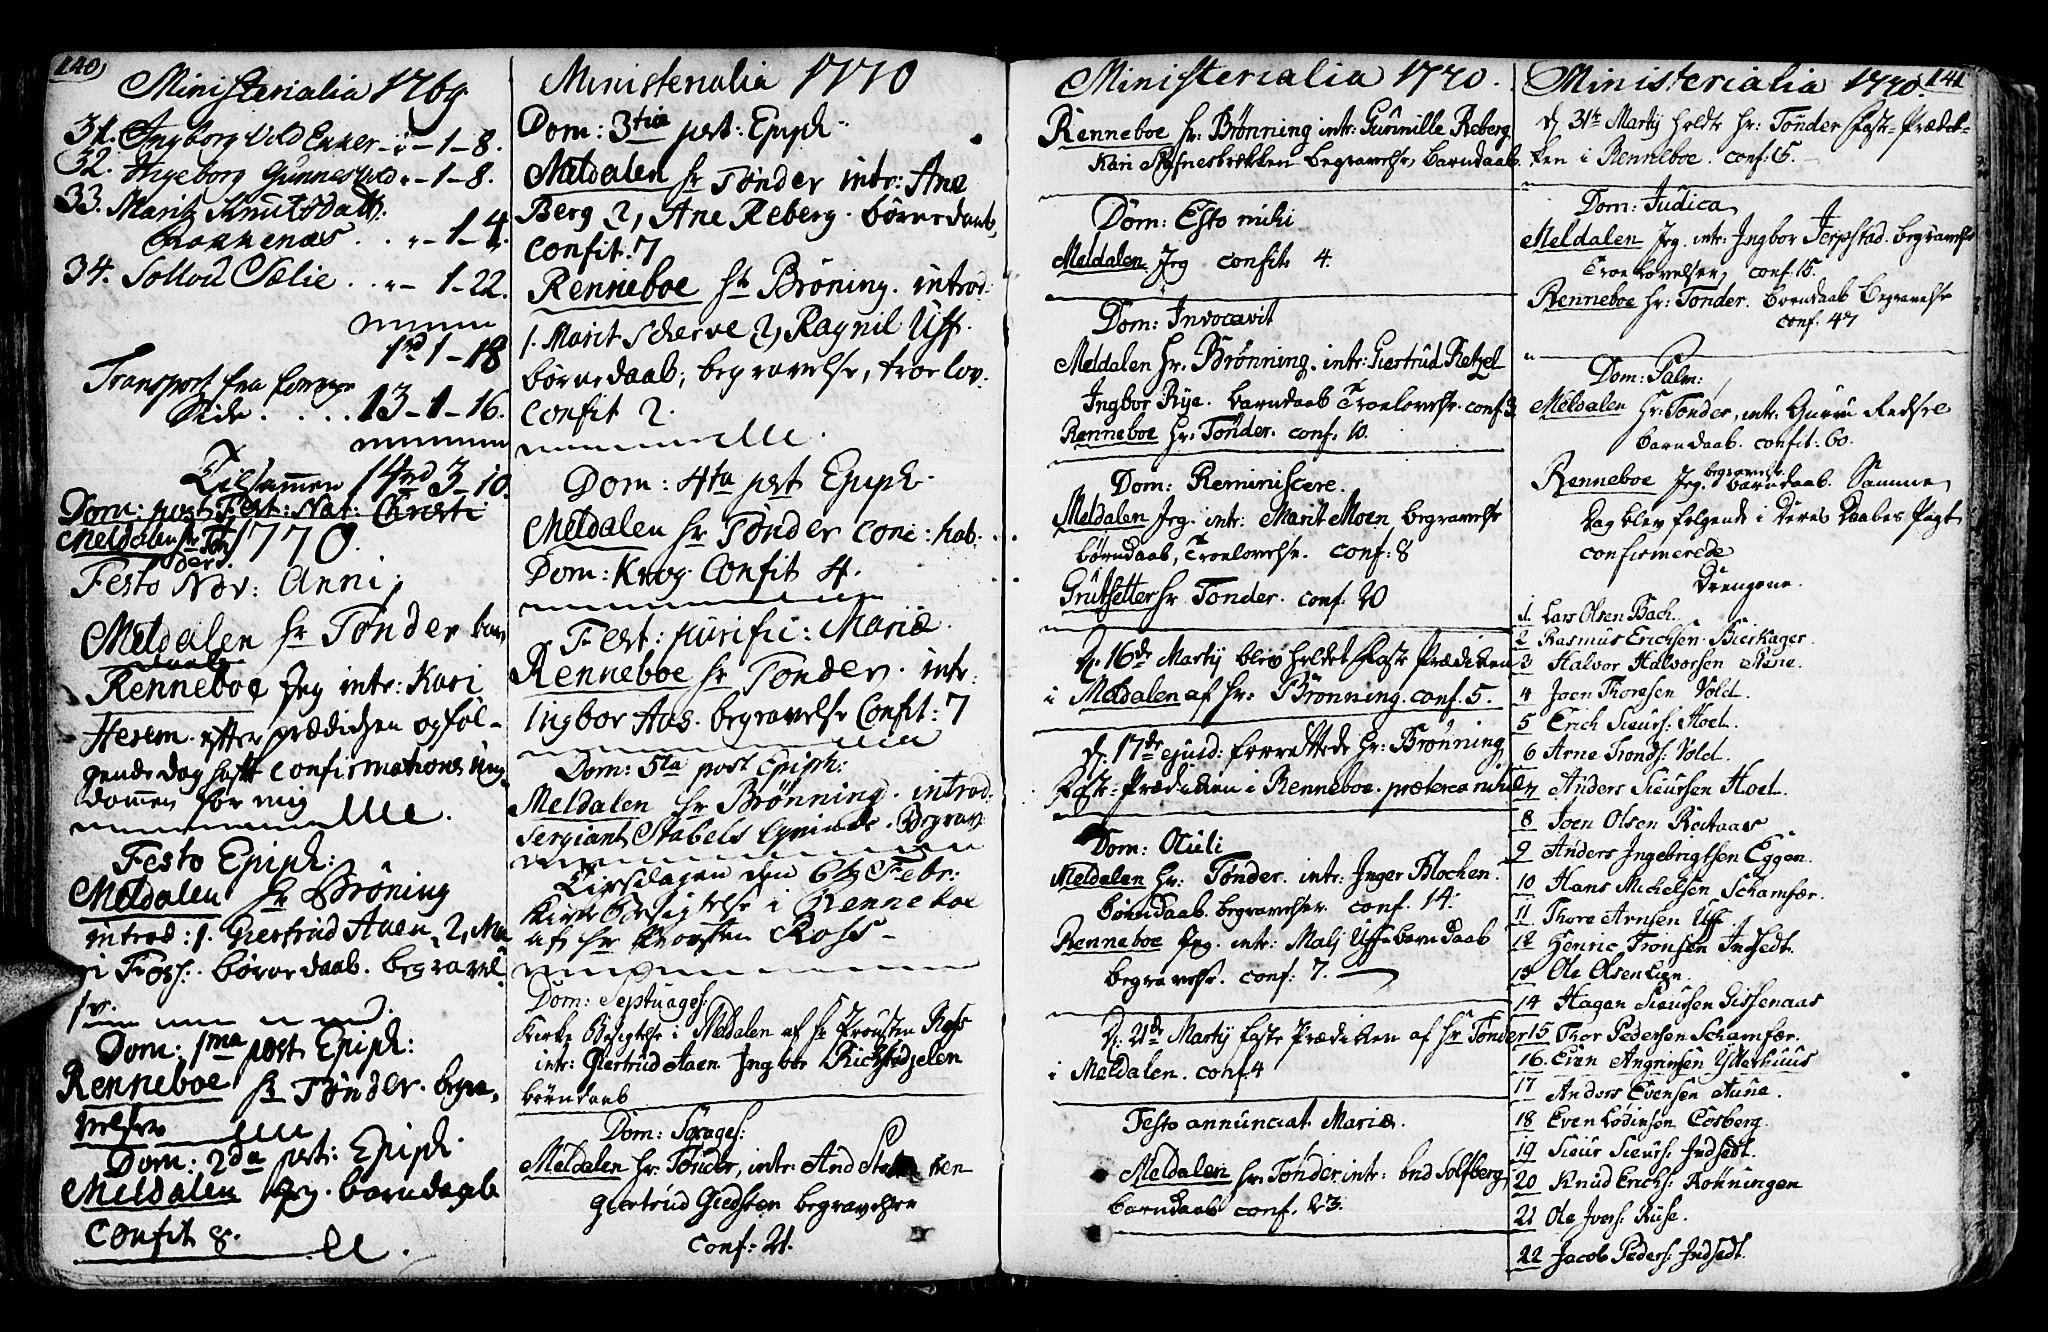 140
Ministerialia 1769
31. Ingborg Vold Enker - " - 1 - 8.
32. Ingeborg Gunnesvold " - 1 - 8.
33. Marit Knutsdatt:
" - 1 - 4.
34. Sollovd Sælie . . " - 1 - 22.
1 rd 1 - 18
Transport fra forrige
Side . . . . 13 - 1 - 16.
Tilsammen 14 rd 3 - 10.
Dom: post Fest: Nat: Christi
Meldalen hr Tøn
der.
1770.
Festo Nov: Anni
Meldalen hr Tønder barn
daab
Renneboe Jeg intr: Kari
Herem. efter prædichen og føl-
gende dag hafft confirmations ung
dommen for mig
Festo Epiph:
Meldalen hr Brøning
introd: 1. Giertrud Aaen, 2, Ma
ri Foss: børnedaab. begravel
se.
Dom: 1ma post Epiph:
Renneboe hr Tønder. begra-
velser
Dom: 2da post: Epiph
Meldalen Jeg. barndaab
Confit 8.
Ministerialia 1770
Dom: 3tia post: Epiph.
Meldalen hr Tønder intr: Ane
Berg 2, Ane Reberg. børnedaab,
Confit: 7
Renneboe hr Brøning. introd:
1. Marit Scherve 2, Ragnil Uff.
børnedaab, begravelse, troelov.
Confit 2.
Dom: 4ta post Epiph.
Meldalen hr Tønder conc: hab.
Dom: Krog. Confit 4.
Fest: purific: Mariæ.
Renneboe hr Tønder. intr:
Ingbor Aas. begravelse Confit: 7
Dom: 5ta post Epiph:
Meldalen hr Brønning. introd:
Sergiant Stabels Qvinde. Begrav
Tirsdagen den 6te Febr:
Kirke Besigtelse i Renneboe
af hr Provsten Ross-
Dom: Septuages:
Kirke Besigtelse i Meldalen af hr Provsten Ross
intr: Giertrud Aaen Ingbor
børndaab
Dom: Sexages:
Meldalen hr: Tønder, intr: And
Giertrud Giedsten begravelser
Conf: 21.
Ministerialia 1770.
Renneboe hr: Brønning intr: Gunnille Reberg
Kari begravelse, barndaab.
Dom: Esto mihi
Meldalen Jeg confit 4.
Dom: Invocavit
Meldalen hr. Brønning. intr: Giertrud Retzel
Ingbor Rye. barndaab Troelovelse. conf: 3
Renneboe hr: Tønder. conf: 10.
Dom: Reminiscere.
Meldalen Jeg. intr: Marit Moen begravelse
børndaab, Troelovelse. conf: 8
Grutsetter hr Tonder. conf: 20
D. 16de Martij blev holdet Faste Prædiken
i Meldalen af hr: Brønning. conf. 5.
D. 17de ejusd: forrettede hr: Brønning
Faste-Prædiken i Renneboe. præterea nihil
Dom: Oculi
Meldalen hr: Tønder. intr: Inger Blochen.
børndaab. begravelser. conf. 14.
Renneboe Jeg. intr: Malj Uff barndaab
begravelse. conf: 7.
D. 21de Martij faste Prædiken af hr Tønder
i Meldalen. conf 4
Festo annunciat. Mariæ.
Meldalen hr. Tønder intr: Solfberg
barndaab conf. 23.
Ministerialia 1770. 141
D 31te Martij holdte hr: Tønder Faste-Prædi-
ken i Renneboe. conf: 15.
Dom: Judica
Meldalen Jeg. intr: Ingbor Jerpstad. begravelse
Troelovelser, conf. 15.
Renneboe hr: Tonder. barndaab begravelse
conf. 47
Dom: Palm:
Meldalen hr: Tønder, intr: Guru
barndaab. confit: 60.
Renneboe Jeg. begravelse. barndaab. Samme
Dag blev følgende i deres Daabes Pagt
confirmerede
Drengene.
1. Lars Olsen Bach.
2 Rasmus Erichsen Bierkager.
3 Halvor Halvorsen Stene.
4 Joen Thoresen Vold.
5 Erich Siurs: Hoel.
6 Arne Tronds: Vold.
7 Anders Siursen Hoel.
8 Joen Olsen Reitaas
9 Anders Ingebrigtsen Eggen.
10 Hans Michelsen Schamfær.
11 Thore Arnsen Uff
12 Henric Tronsen Indsedt.
13 Ole Olsen Lien.
14 Hagen Siursen Gissenaas
15 Thor Pedersen Schamfær.
16. Even Angrimsen Ytterhuus
17 Anders Evensen Aune.
18 Even Lodinsen Eosberg.
19 Siur Siurs: Indsedt.
20 Knud Erichs: Rønningen
21 Ole Ivers: Ruse.
22 Jacob Peders: Indsedt.